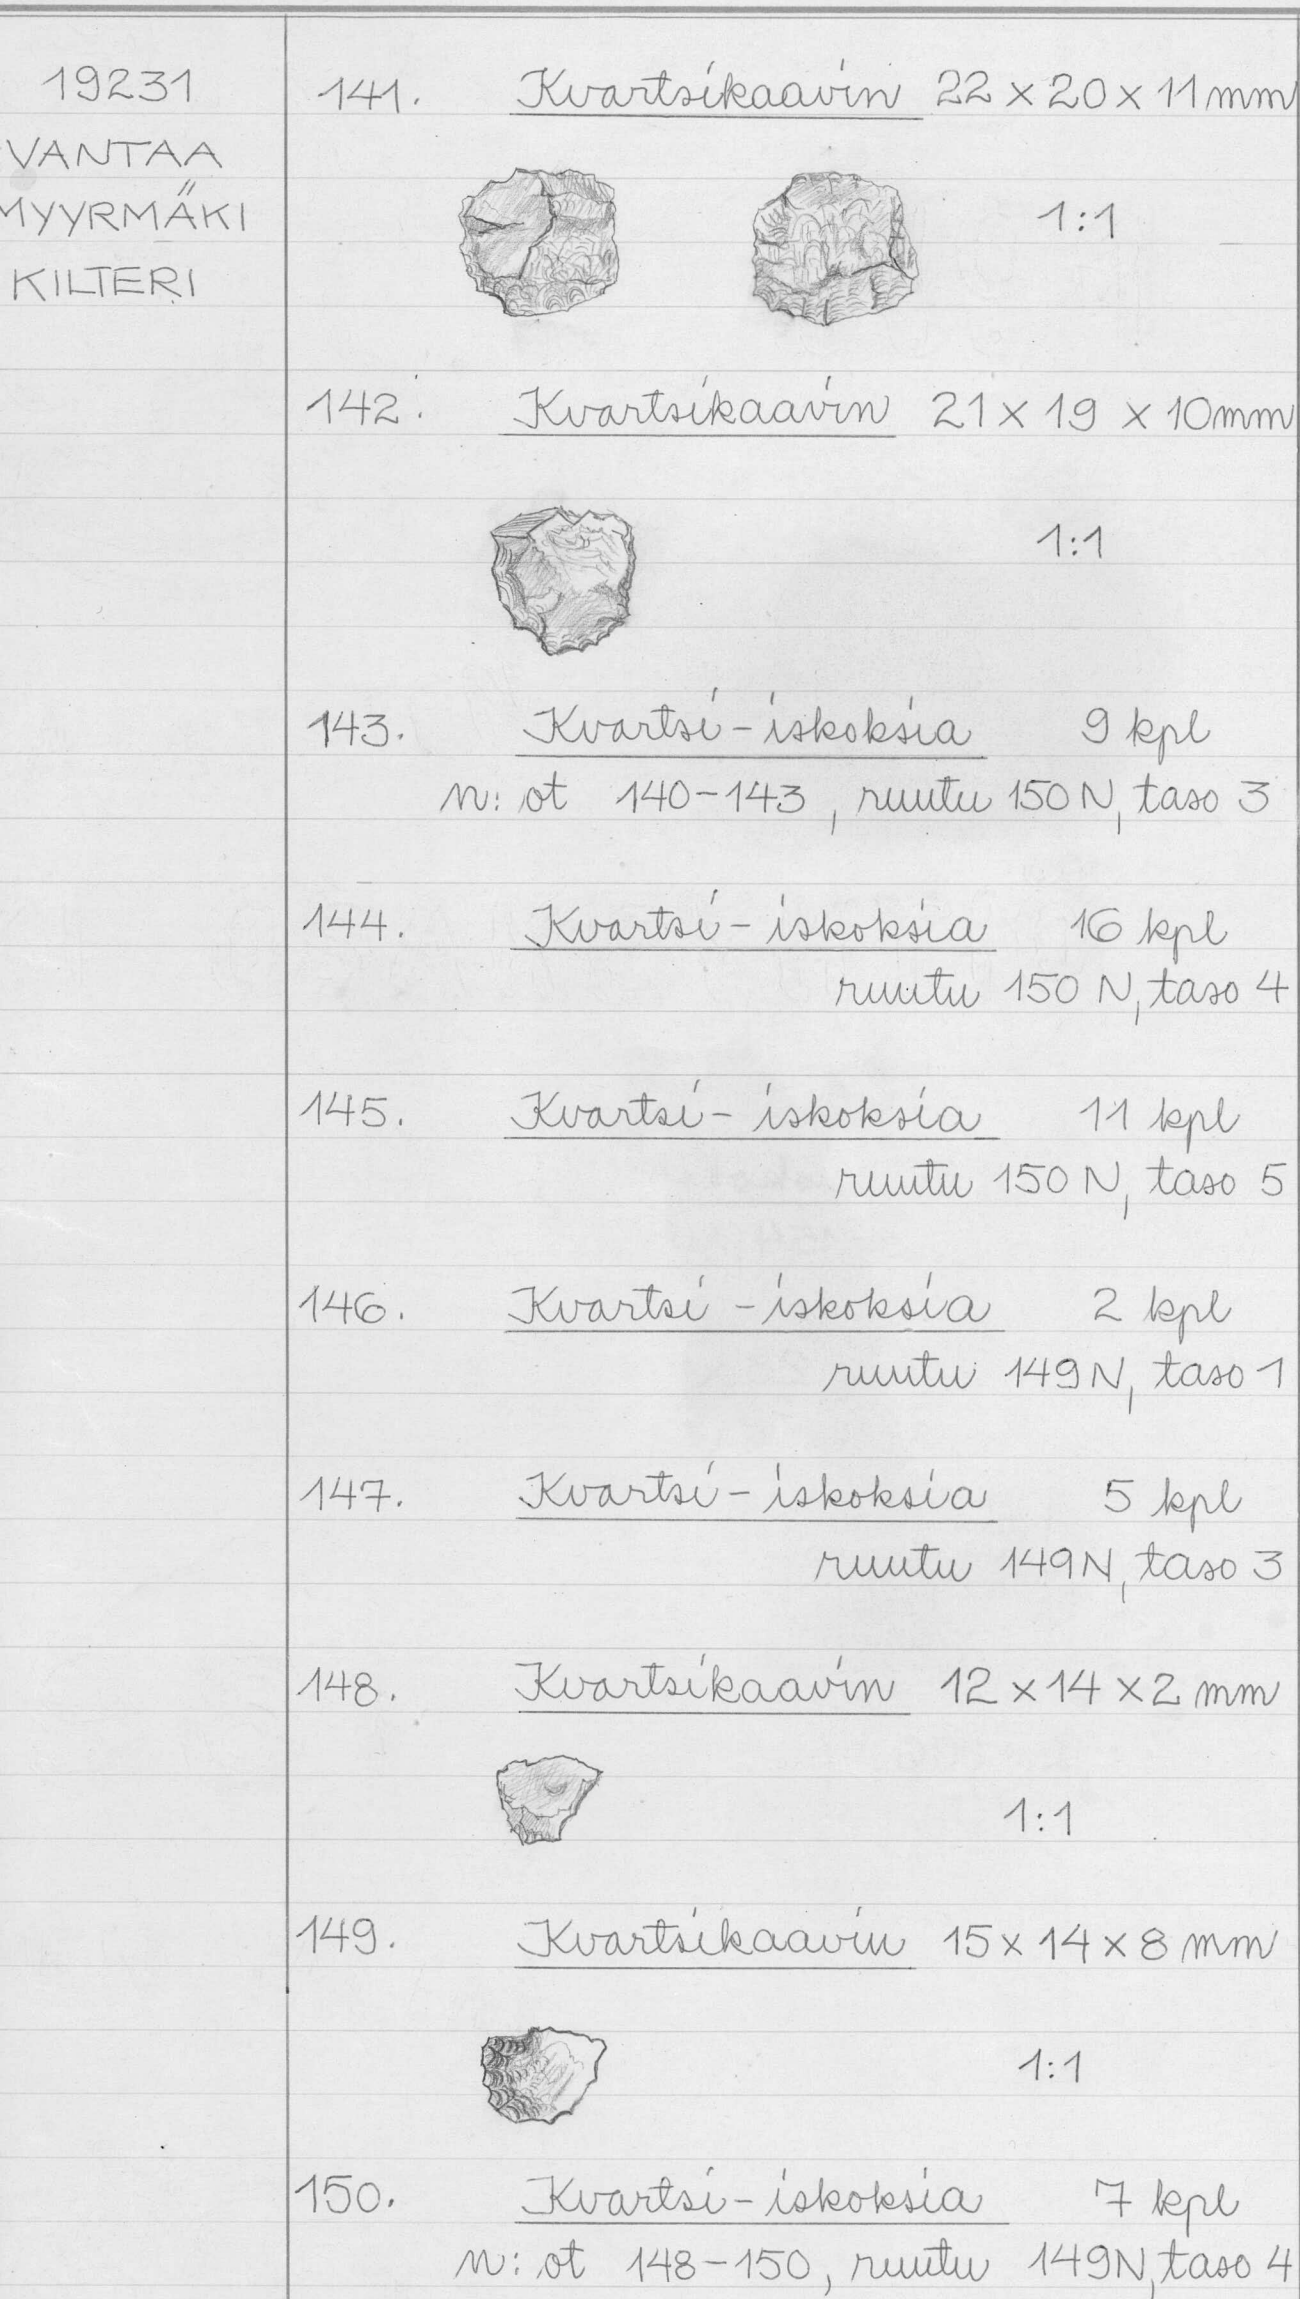 19231
VANTAA
MYYRMÄKI
KILTERI
141. Kvartsikaavin 22 x 20 x 11 mm
1:1
142. Kvartsikaavin 21 x 19 x 10 mm
1:1
143. Kvartsi-iskoksia 9 kpl
n:ot 140-143, ruutu 150 N, taso 3
144. Kvartsi-iskoksia 16 kpl
ruutu 150 N, taso 4
145. Kvartsi-iskoksia 11 kpl
ruutu 150 N, taso 5
146. Kvartsi-iskoksia 2 kpl
ruutu 149 N, taso 1
147. Kvartsi-iskoksia 5 kpl
ruutu 149 N, taso 3
148. Kvartsikaavin 12 x 14 x 2 mm
1:1
149. Kvartsikaavin 15 x 14 x 8 mm
1:1
150. Kvartsi-iskoksia 7 kpl
n:ot 148-150, ruutu 149 N, taso 4